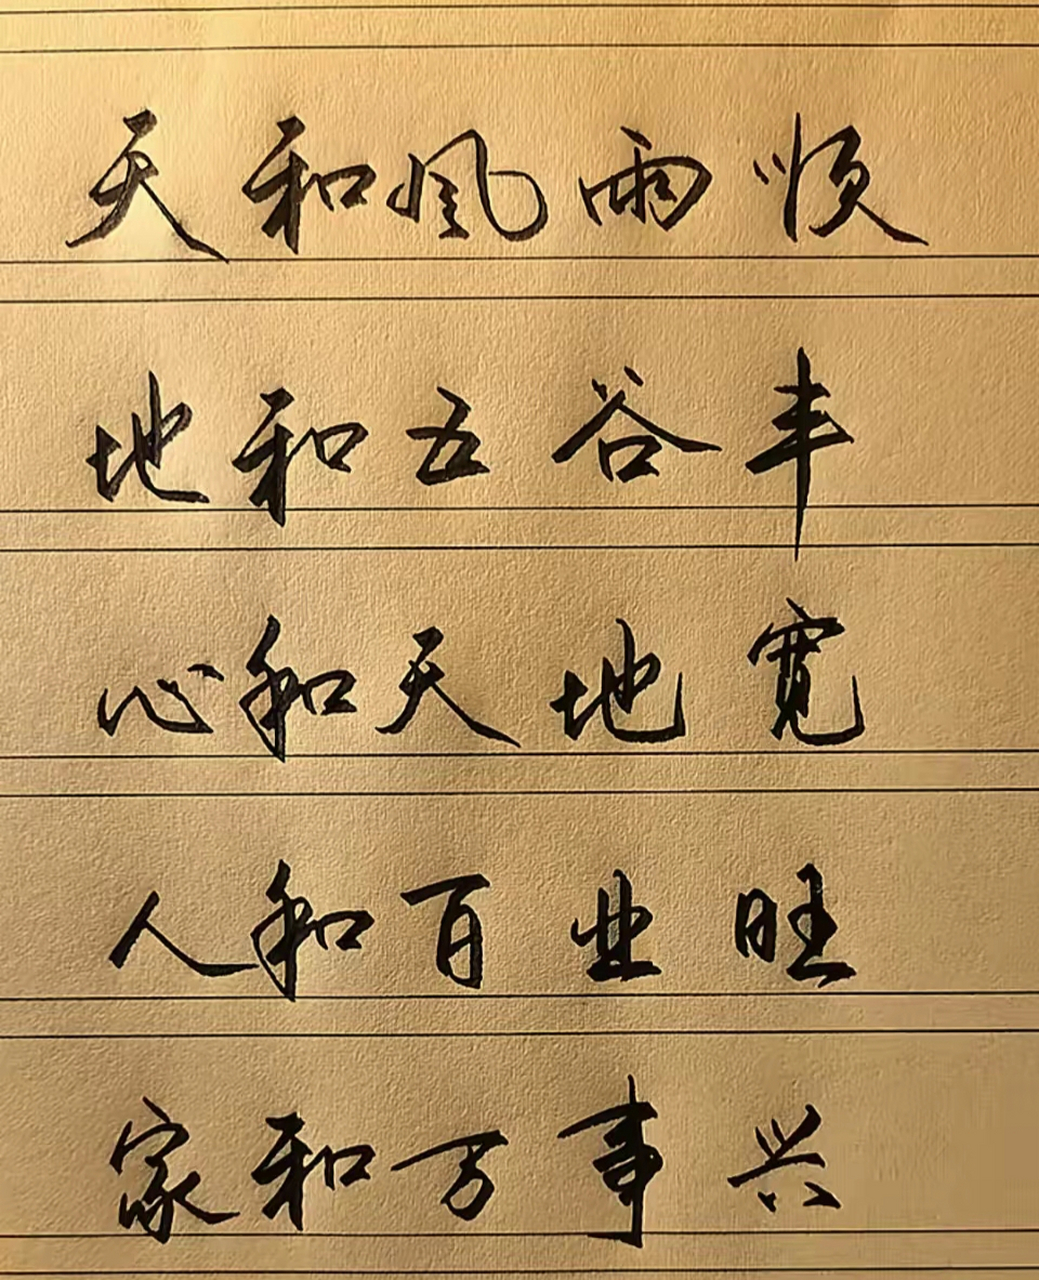 天和風雨顺
地和五谷丰
心和天地宽
人和百业旺
家和万事兴